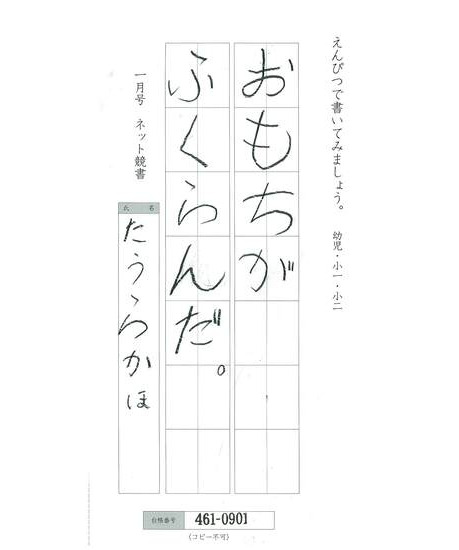 えんぴつで書いてみましょう。 幼児・小一・小二
おもちが
ふくらんだ。
一月号 ネット競書
氏名
たうらかほ
合格番号 461-0901
(コピー不可)